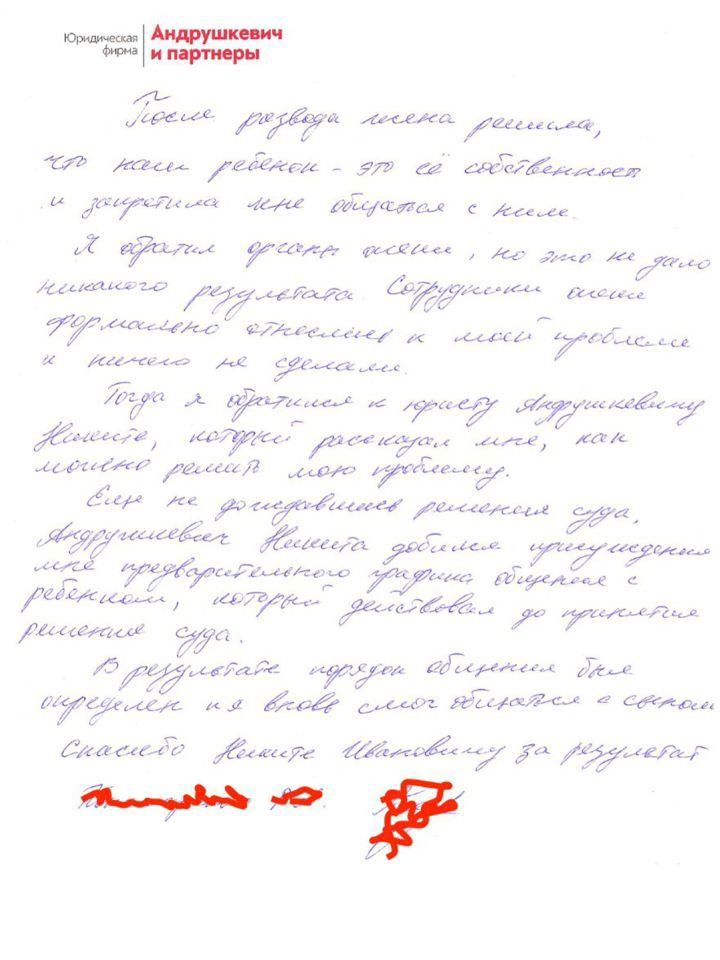 Юридическая фирма
Андрушкевич и партнеры
После развода жена решила,
что наш ребенок - это её собственность
и запретила мне общаться с ним.
Я обратил органы опеки, но это не дало
никакого результата. Сотрудники опеки
формально отнеслись к моей проблеме
и ничего не сделали.
Тогда я обратился к юристу Андрушкевичу
Никите, который рассказал мне, как
можно решить мою проблему.
Еще не дождавшись решения суда,
Андрушкевич Никита добился присуждения
мне предварительного графика общения с
ребенком, который действовал до принятия
решения суда.
В результате порядок общения был
определен и я вновь смог общаться с сыном
Спасибо Никите Ивановичу за результат